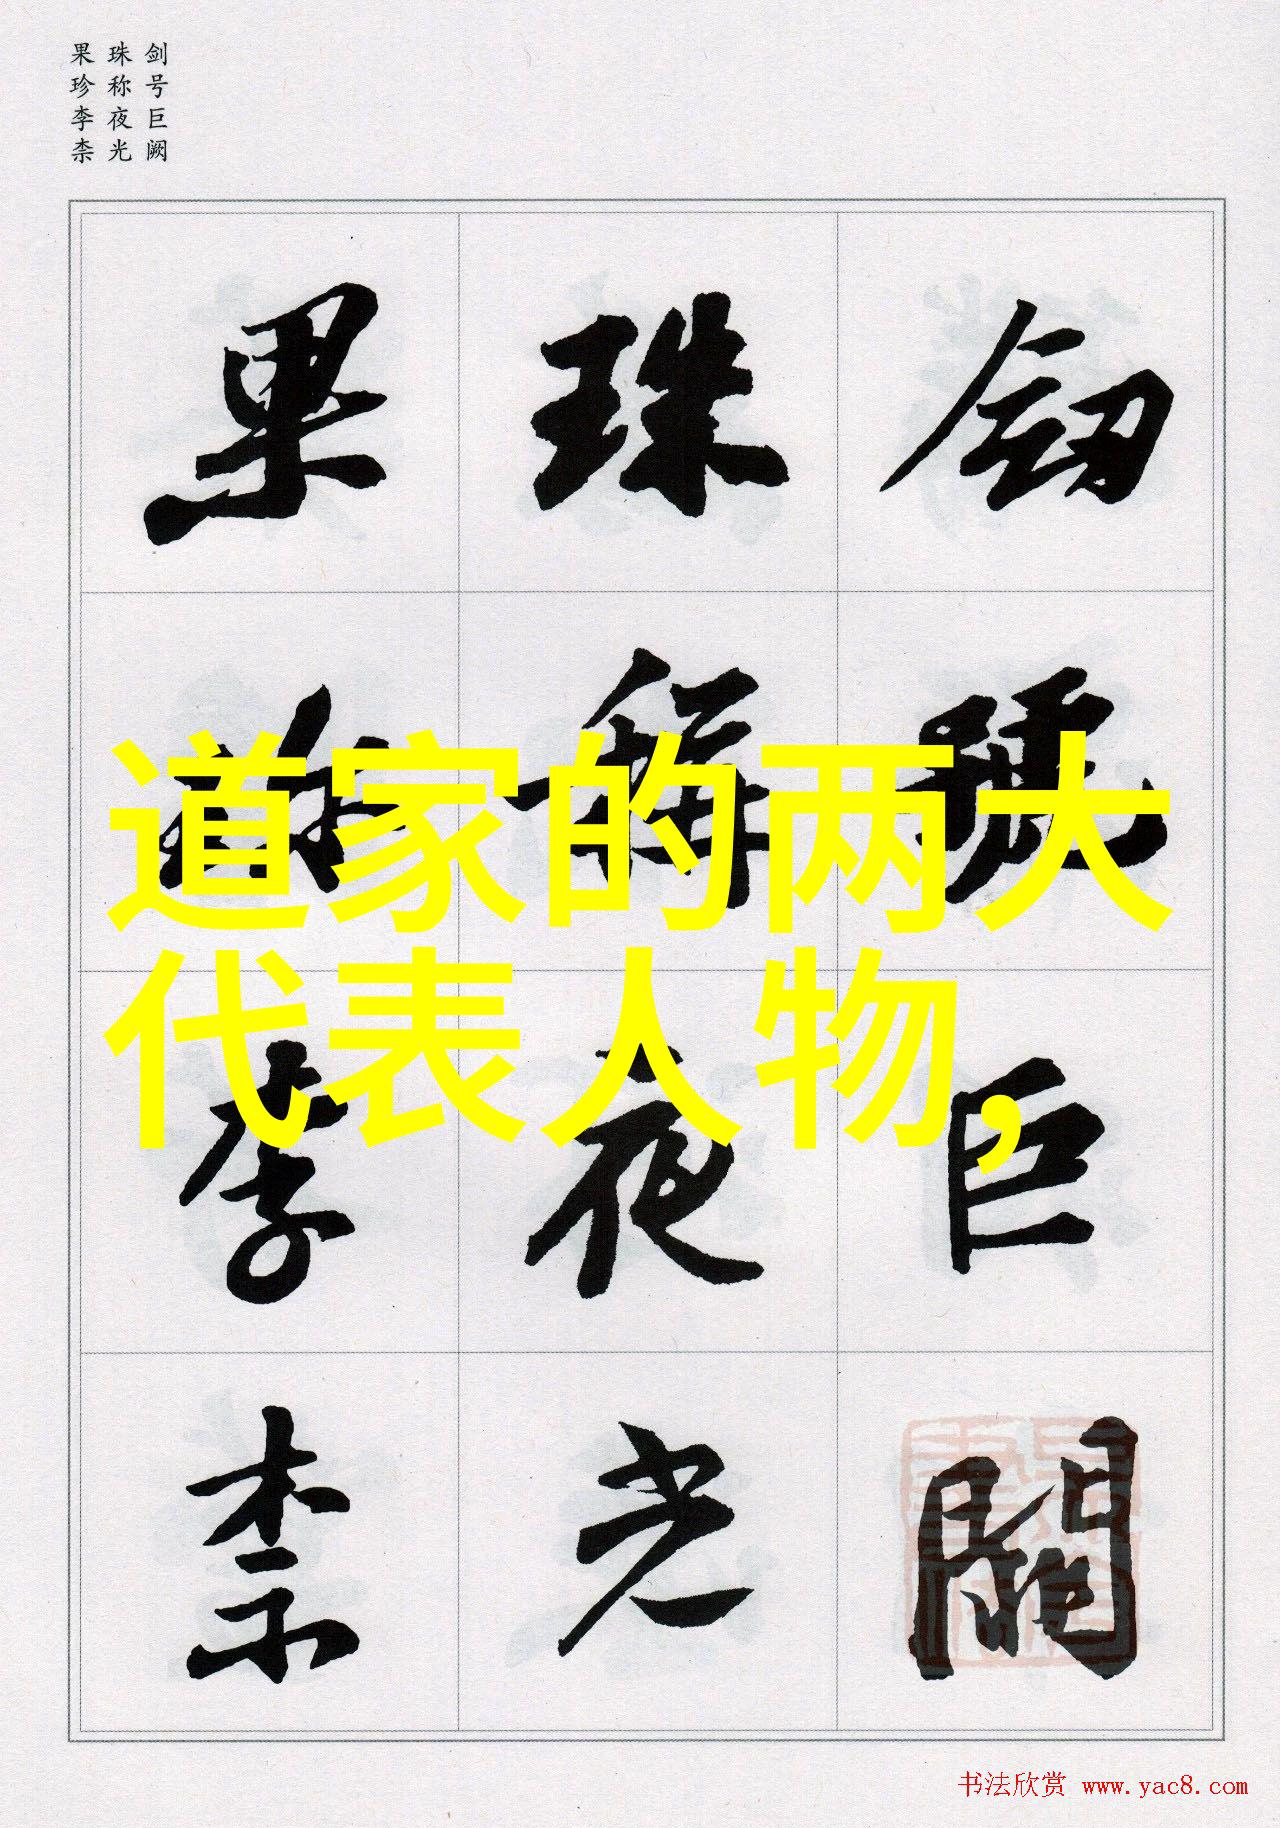 剑号巨阙
珠称夜光
果珍李柰
剑号巨阙
珠称夜光
果珍李柰
道家的两大
代表人物，
书法欣赏 www.yac8.com